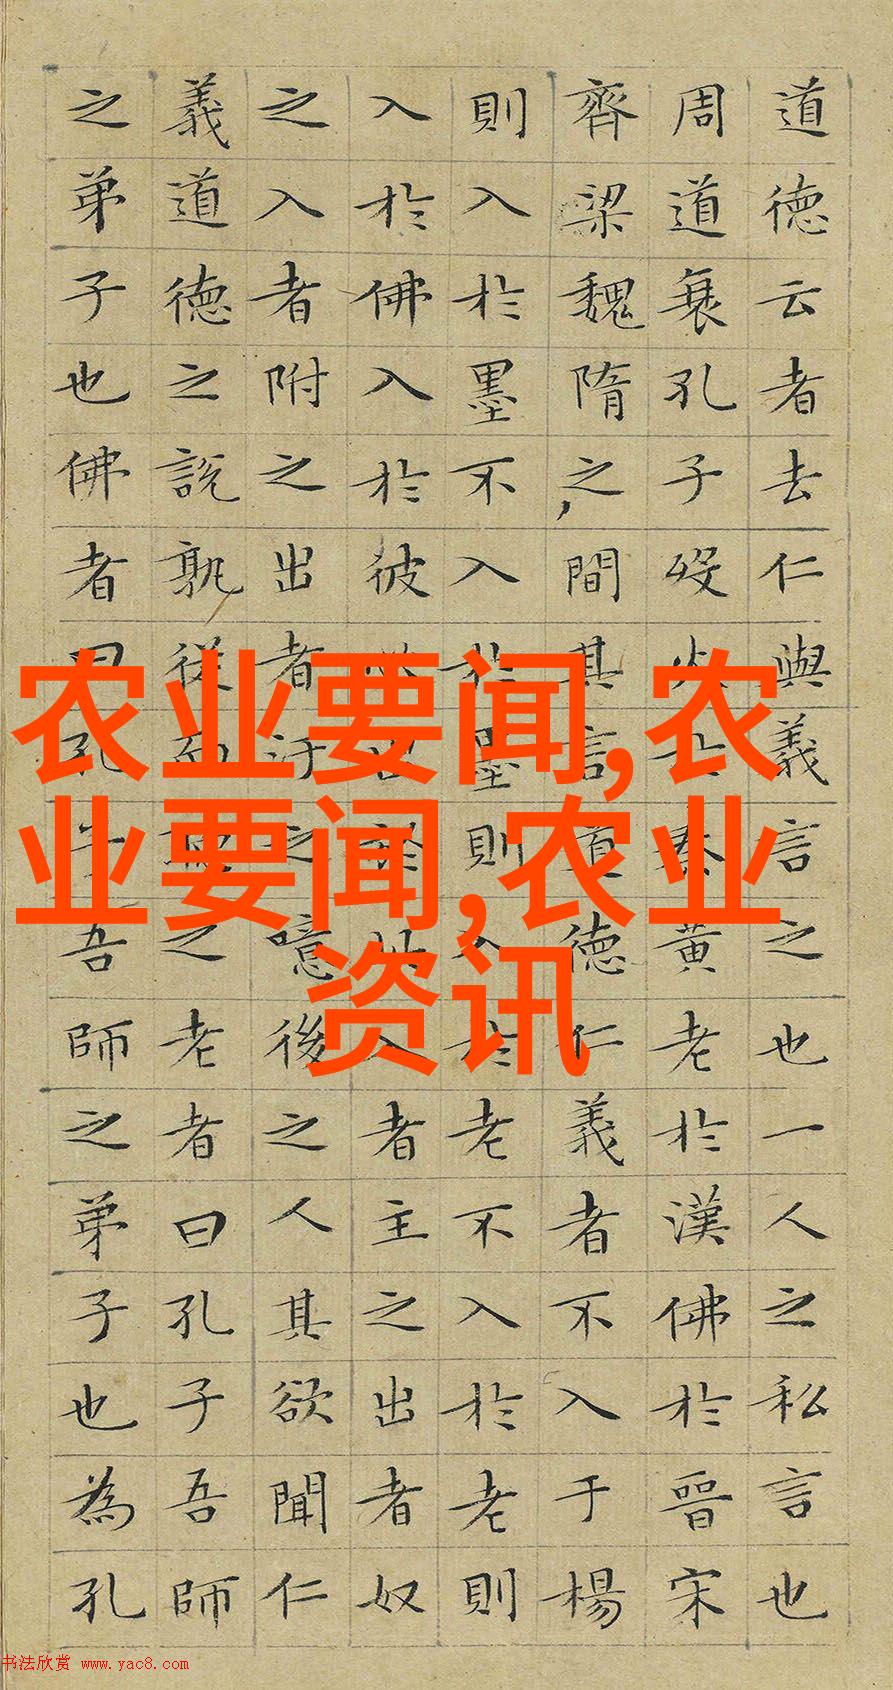 道德云者去仁與義言之也一人之私言也
周道衰孔子歿火秦黄老於漢佛於晉宋
齊梁魏隋之間其言道德仁義者不入于楊
則入於墨不入於墨則入於老不入於老則
入於佛入於彼於入者主之出者奴
之入者附之出者汙之噫後之人其欲聞仁
義道德之説孰從而之老者曰孔子吾師
之弟子也佛者曰孔子吾師之弟子也為孔
农业要闻,农
业要闻,农业
资讯
书法欣赏 www.yac8.com